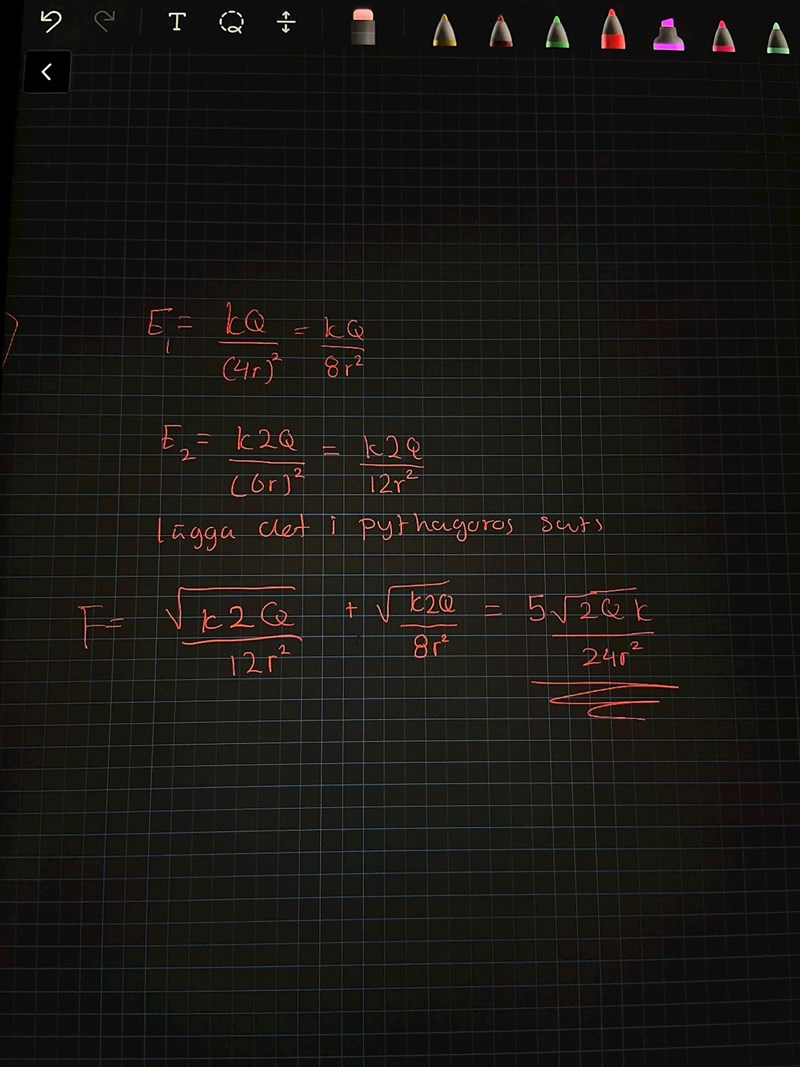 T
E₁ = kQ/(4r)² = kQ/8r²
E₂ = k2Q/(6r)² = k2Q/12r²
lägga det i pythagoros sats
F = √k2Q/12r² + √k2Q/8r² = 5√2Qk/24r²